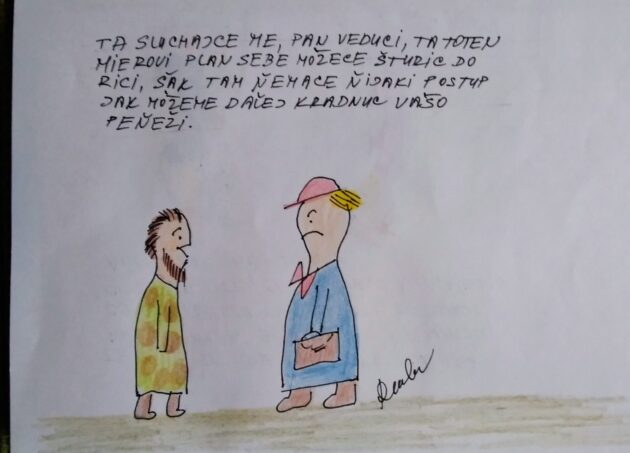 TA SLUCHAJCE ME, PAN VEDUCI, TA TOTEN
MIEROVI PLAN SEBE MOŽECE ŠTURIC DO
RICI, ŠAK TAM ŇEMACE ŇIJAKI POSTUP
JAK MOŽEME DAĽEJ KRADNUC VAŠO
PEŇEŽI.